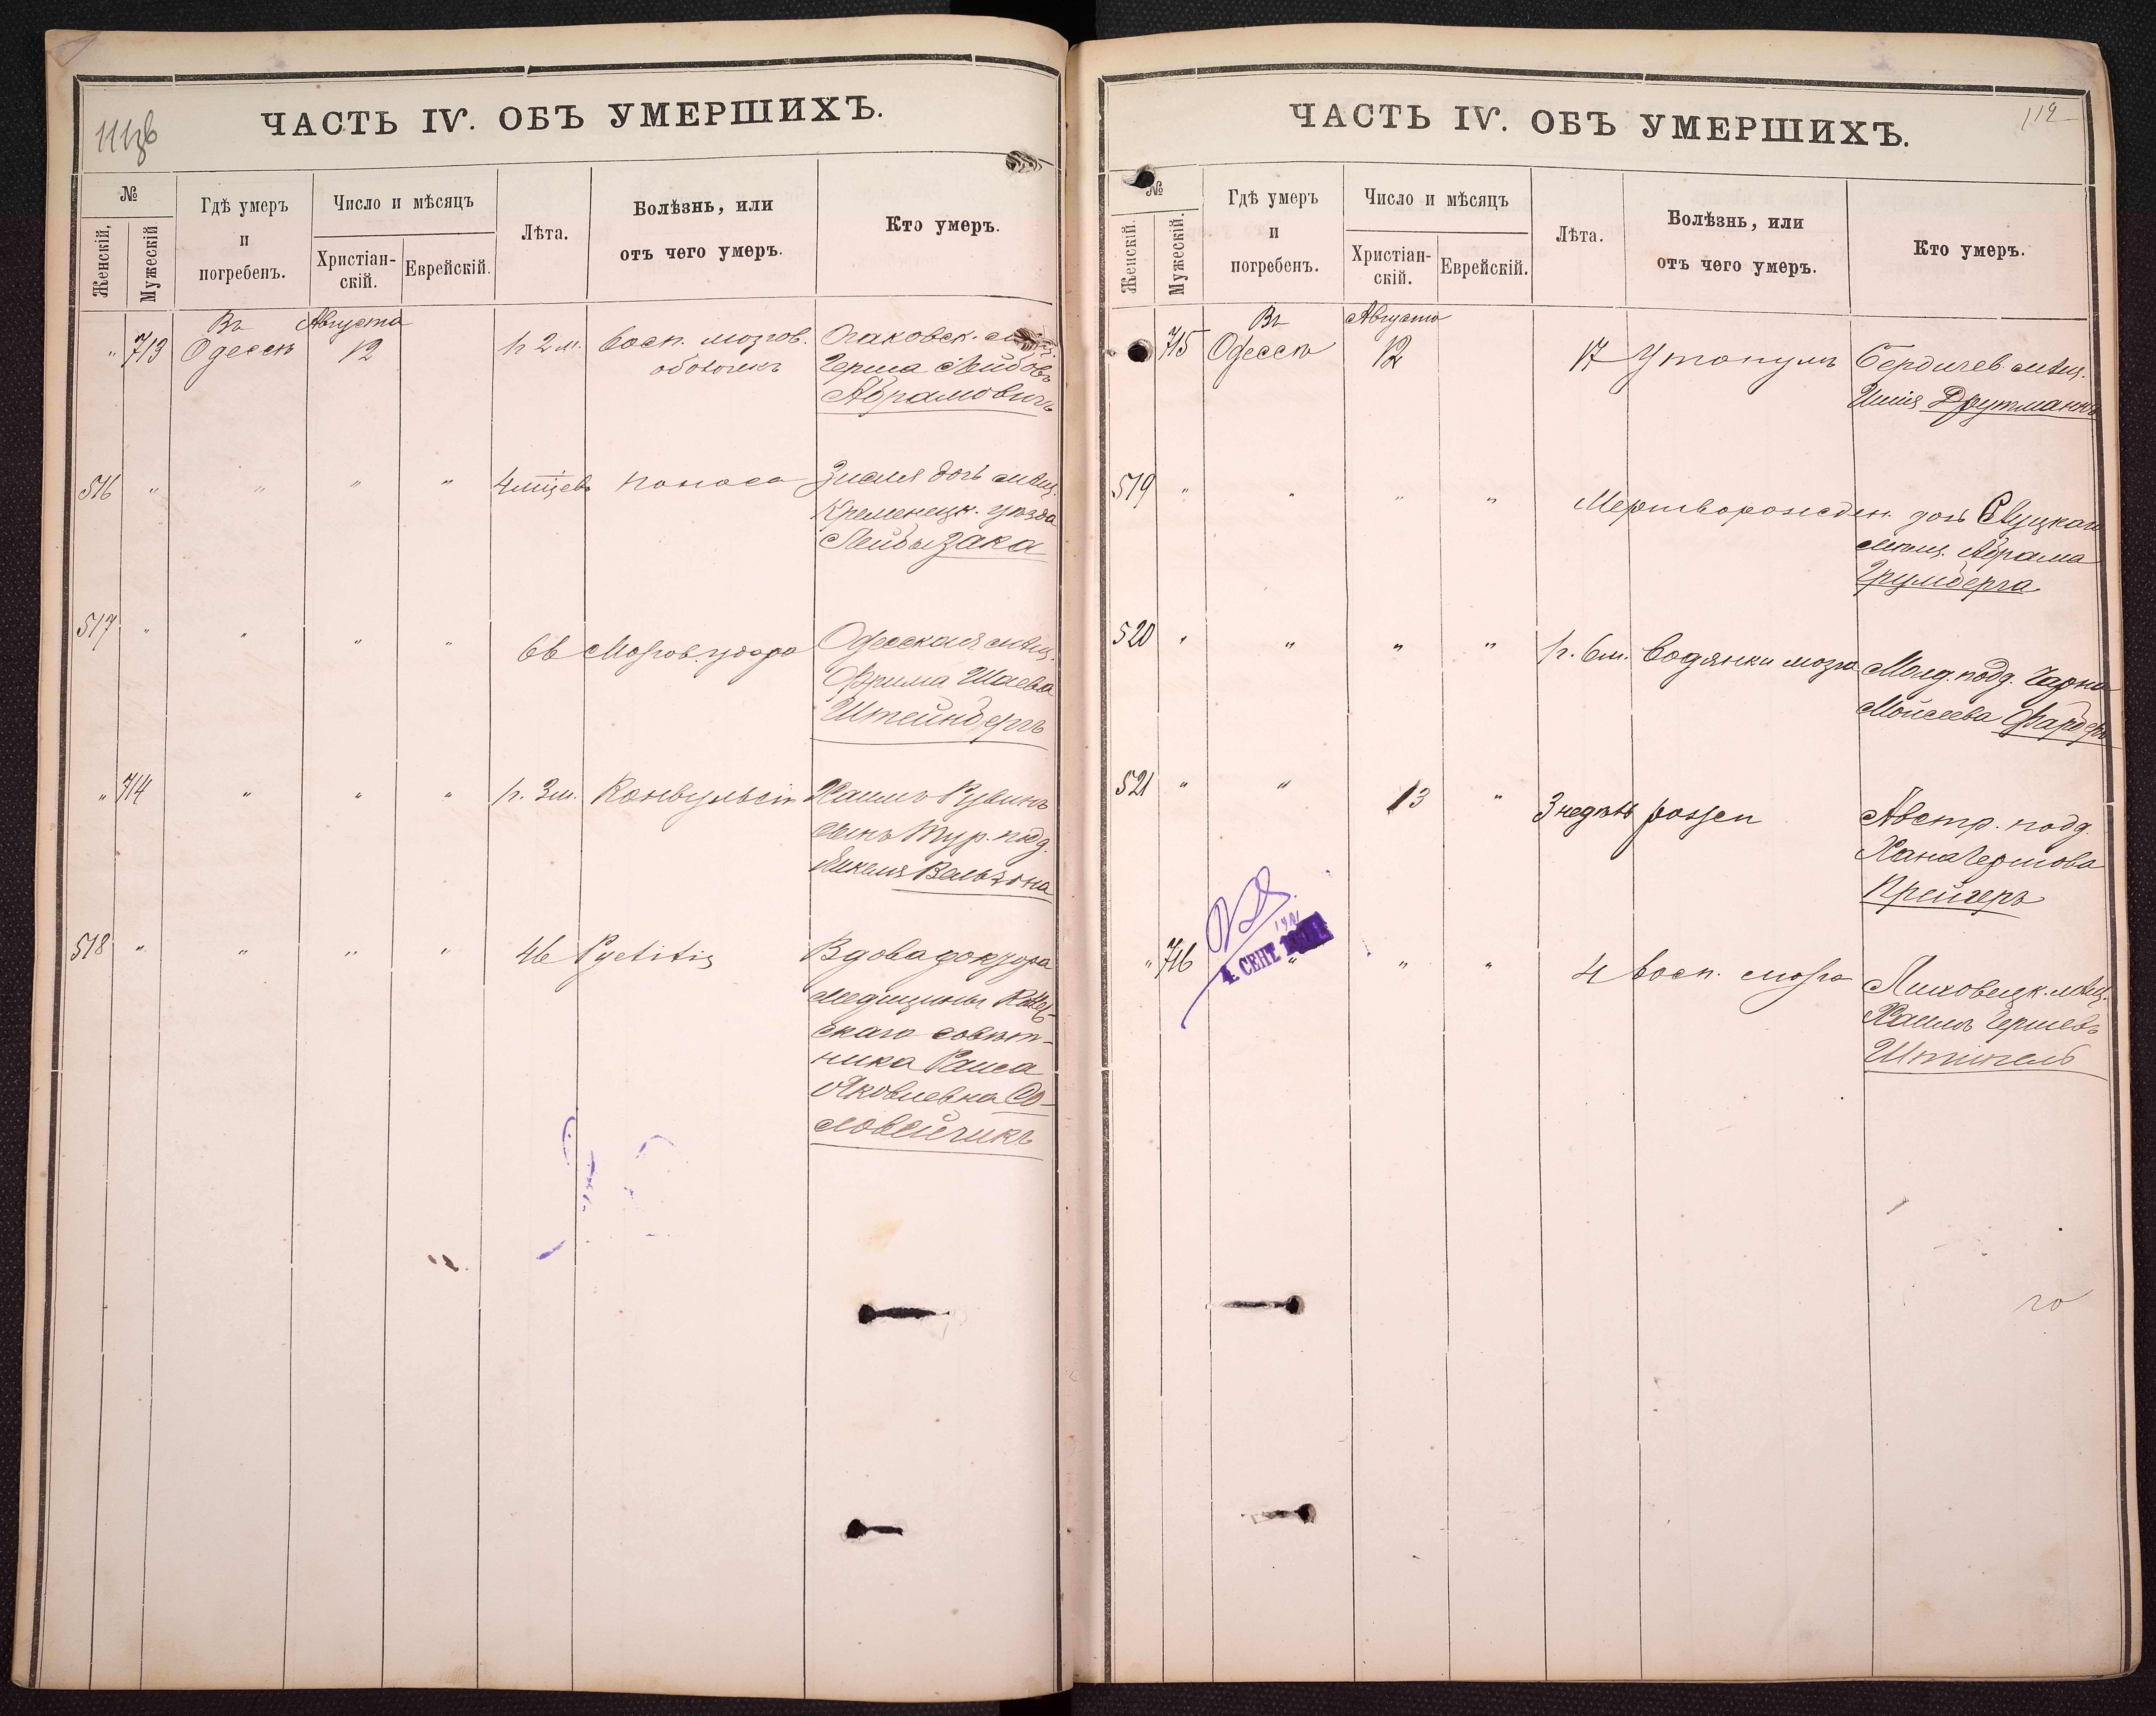 ЧАСТЬ IV. ОБЪ УМЕРШИХЪ.
№
Женскій.
Мужескій
Гдѣ умеръ
и
погребенъ.
Число и мѣсяцъ
Христіан-
скій.
Еврейскій.
Лѣта.
Болѣзнь, или
отъ чего умеръ.
Кто умеръ.
" 713 Въ Одессѣ Августа 12 1 г. 2 м. Восп. мозгов. Очаковск.
оболочекъ Герша Лейбовъ
Абрамовичъ
516 " " " " 4 мѣсцев. Поноса Зисля дочь мѣщ.
Кременецк. уѣзда
Лейбы Зака
517 " " " " 66 Мозгов. удара Одесская мѣщ.
Фрима Шаева
Штейнбергъ
" 714 " " " 1 г. 3 м. Конвульсіи Хаимъ Рувинъ
сынъ Тур. подд.
Вельзона
518 " " " " 46 Pyelitis Вдова доктора
медицины
скаго совѣт-
ника Раиса
Яковлевна Со-
ловейчикъ
ЧАСТЬ IV. ОБЪ УМЕРШИХЪ.
112
№
Женскій.
Мужескій.
Гдѣ умеръ
и
погребенъ.
Число и мѣсяцъ
Христіан-
скій.
Еврейскій.
Лѣта.
Болѣзнь, или
отъ чего умеръ.
Кто умеръ.
715 Въ Одессѣ Августа 12 17 Утонулъ Бердичев. мѣщ.
Друтманъ
519 " " " " Мертворожден. дочь Слуцкаго
мѣщ. Абрама
Грумберга
520 " " " " 1 г. 6 м. Водянки мозга Молд. подд. Чарна
Моисеева Фарберъ
521 " " 13 " 3 недѣль Австр. подд.
Хана Гершова
Крейгеръ
" 716 " " " 4 Восп. мозга Ляховецк. мѣщ.
Хаимъ Гершевъ
Штипель
4 СЕНТ